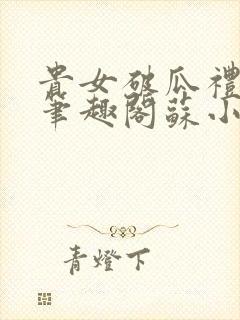 貴女破瓜禮
筆趣閣蘇小
青燈下